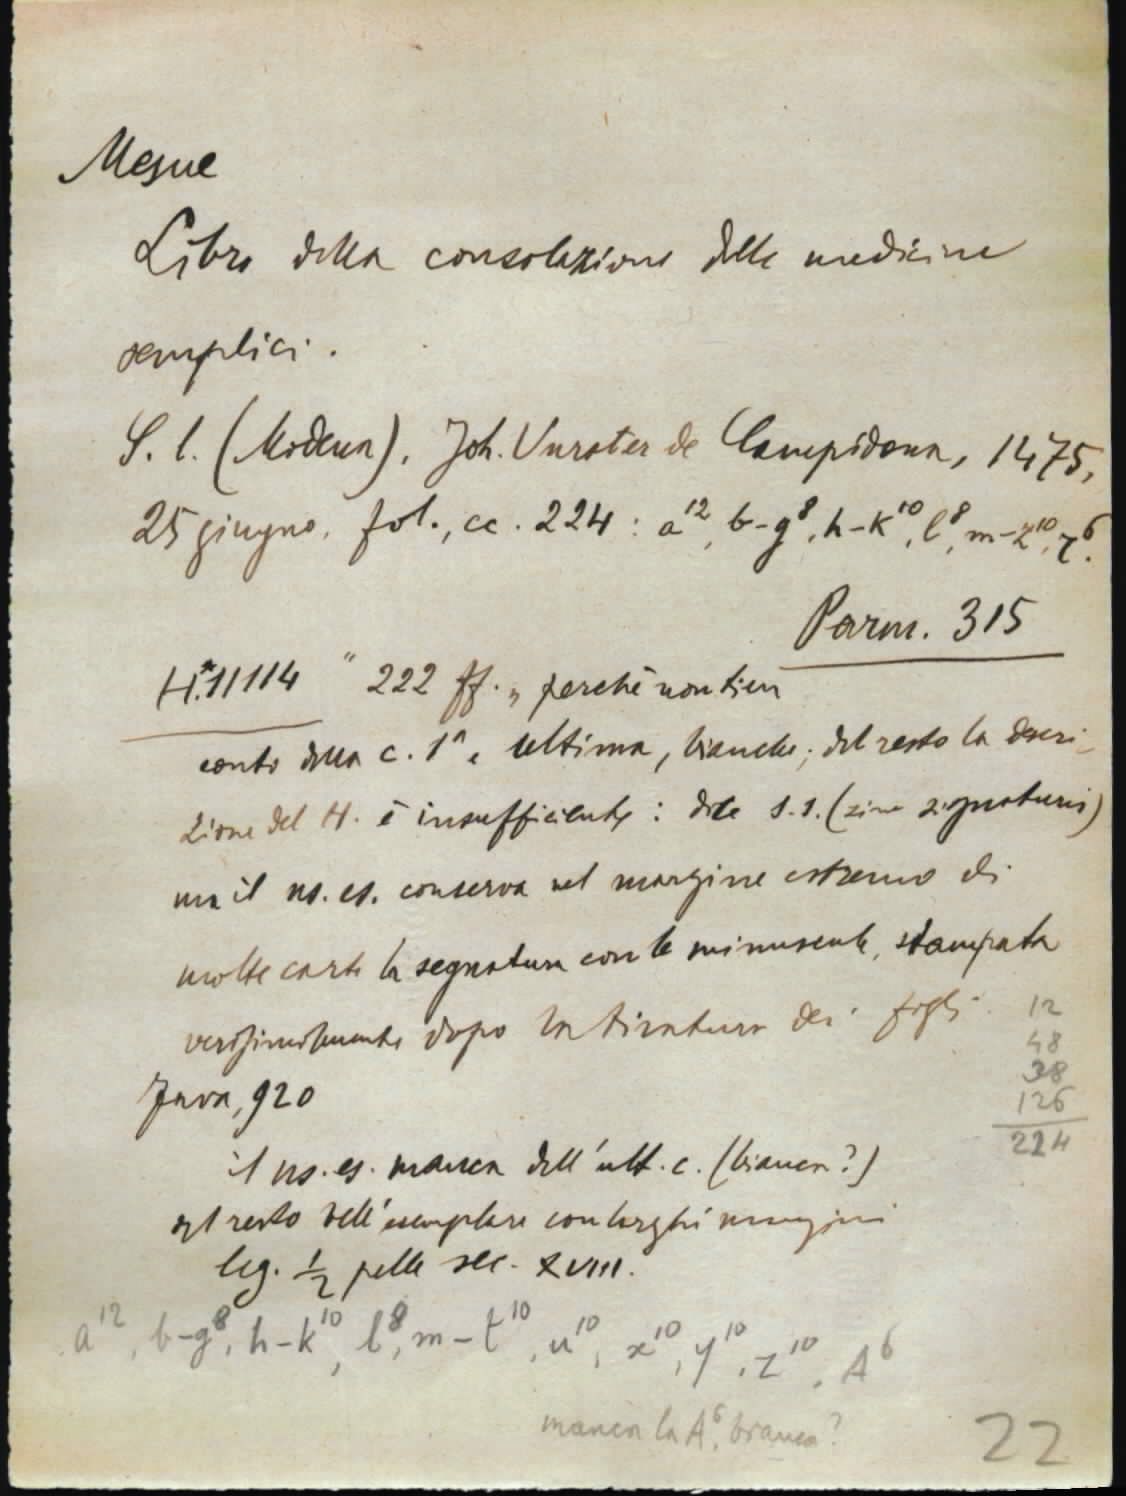 Mesue
Libro della consolazione delle medicine
semplici.
S. l. (Modena), Joh. Vurster de Campidona, 1475,
25 giugno. fol., cc. 224: a¹², b-g⁸, h-k¹⁰, l⁸, m-z¹⁰, ⁶.
Parm. 315
H*.11114 " 222 ff. „ perchè non tien
conto della c. 1ª e ultima, bianche; del resto la descri-
zione del H. è insufficiente: dice s.s. (sine signaturis)
ma il ns. es. conserva nel margine estremo di
molte carte la segnatura con le minuscole, stampata
verosimilmente dopo la tiratura dei fogli.
12
48
38
126
224
920
il ns. es. manca dell'ult. c. (bianca?)
del resto bell'esemplare con larghi margini
leg. ½ pelle sec. XVIII.
a¹², b-g⁸, h-k¹⁰, l⁸, m-t¹⁰, u¹⁰, x¹⁰, y¹⁰, z¹⁰, A⁶
manca la A⁶, bianca?
22